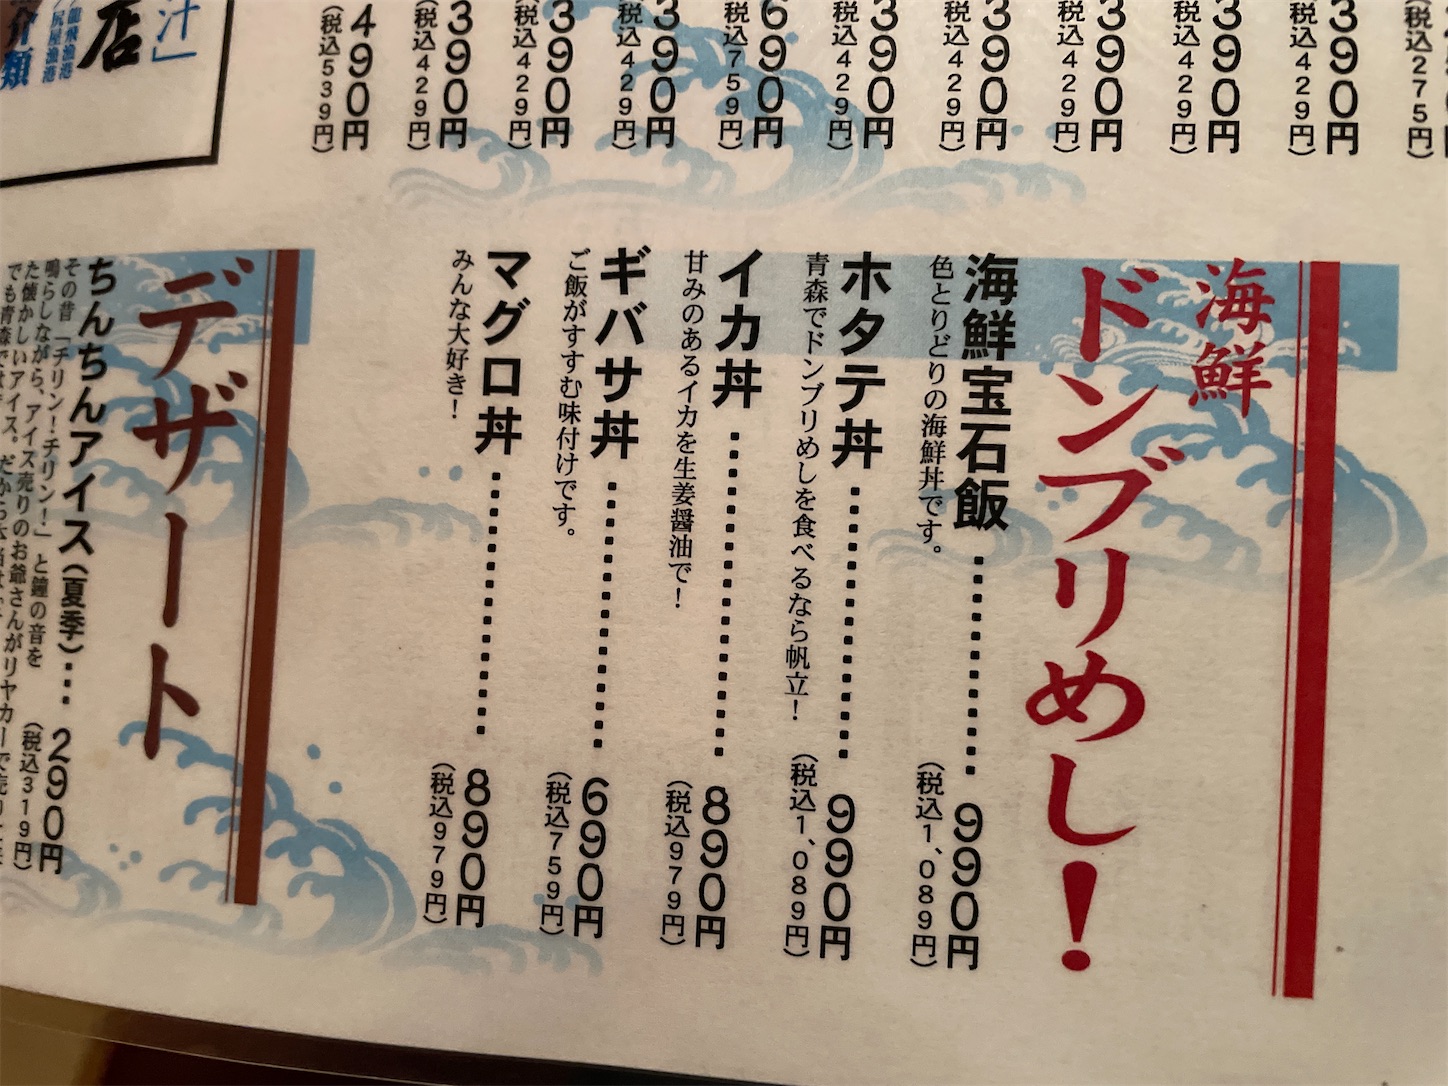 390円
(税込429円)
390円
(税込429円)
390円
(税込429円)
390円
(税込429円)
390円
(税込429円)
690円
(税込759円)
390円
(税込429円)
390円
(税込429円)
390円
(税込429円)
490円
(税込539円)
汁」
店
龍飛漁港
尻屋漁港
介類
海鮮
ドンブリめし!
海鮮宝石飯 990円
色とりどりの海鮮丼です。 (税込1,089円)
ホタテ丼 990円
青森でドンブリめしを食べるなら帆立! (税込1,089円)
イカ丼 890円
甘みのあるイカを生姜醤油で! (税込979円)
ギバサ丼 690円
ご飯がすすむ味付けです。 (税込759円)
マグロ丼 890円
みんな大好き! (税込979円)
デザート
ちんちんアイス(夏季)… 290円
(税込319円)
その昔「チリン!チリン!」と鐘の音を
鳴らしながら、アイス売りのお爺さんがリヤカーで売り
た懐かしいアイス。だから本当は「
でも青森では